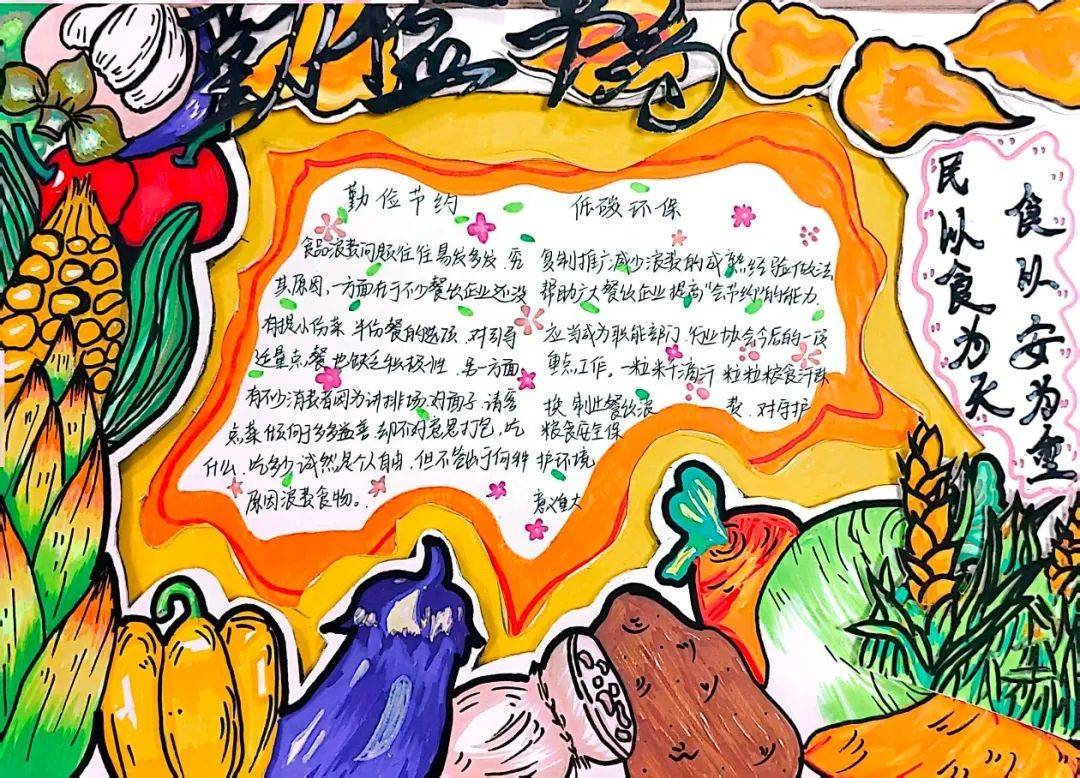 勤俭节约
勤俭节约
食品浪费问题往往易发多发，究
其原因，一方面在于不少餐饮企业还没
有提小份菜、半份餐的选项，对引导
适量点餐也缺乏积极性，另一方面
有不少消费者因为讲排场、对面子，请客
点菜倾向于多多益善，却不好意思打包，吃
什么、吃多少诚然是个人自由，但不管出于何种
原因浪费食物。
低碳环保
复制推广减少浪费的成熟经验做法
帮助广大餐饮企业提高“会节约”的能力
应当成为职能部门、行业协会今后的一项
重点工作。一粒米千滴汗 粒粒粮食汗珠
换 制止餐饮浪 费，对守护
粮食安全保
护环境
意义重大
民以食为天
食以安为重